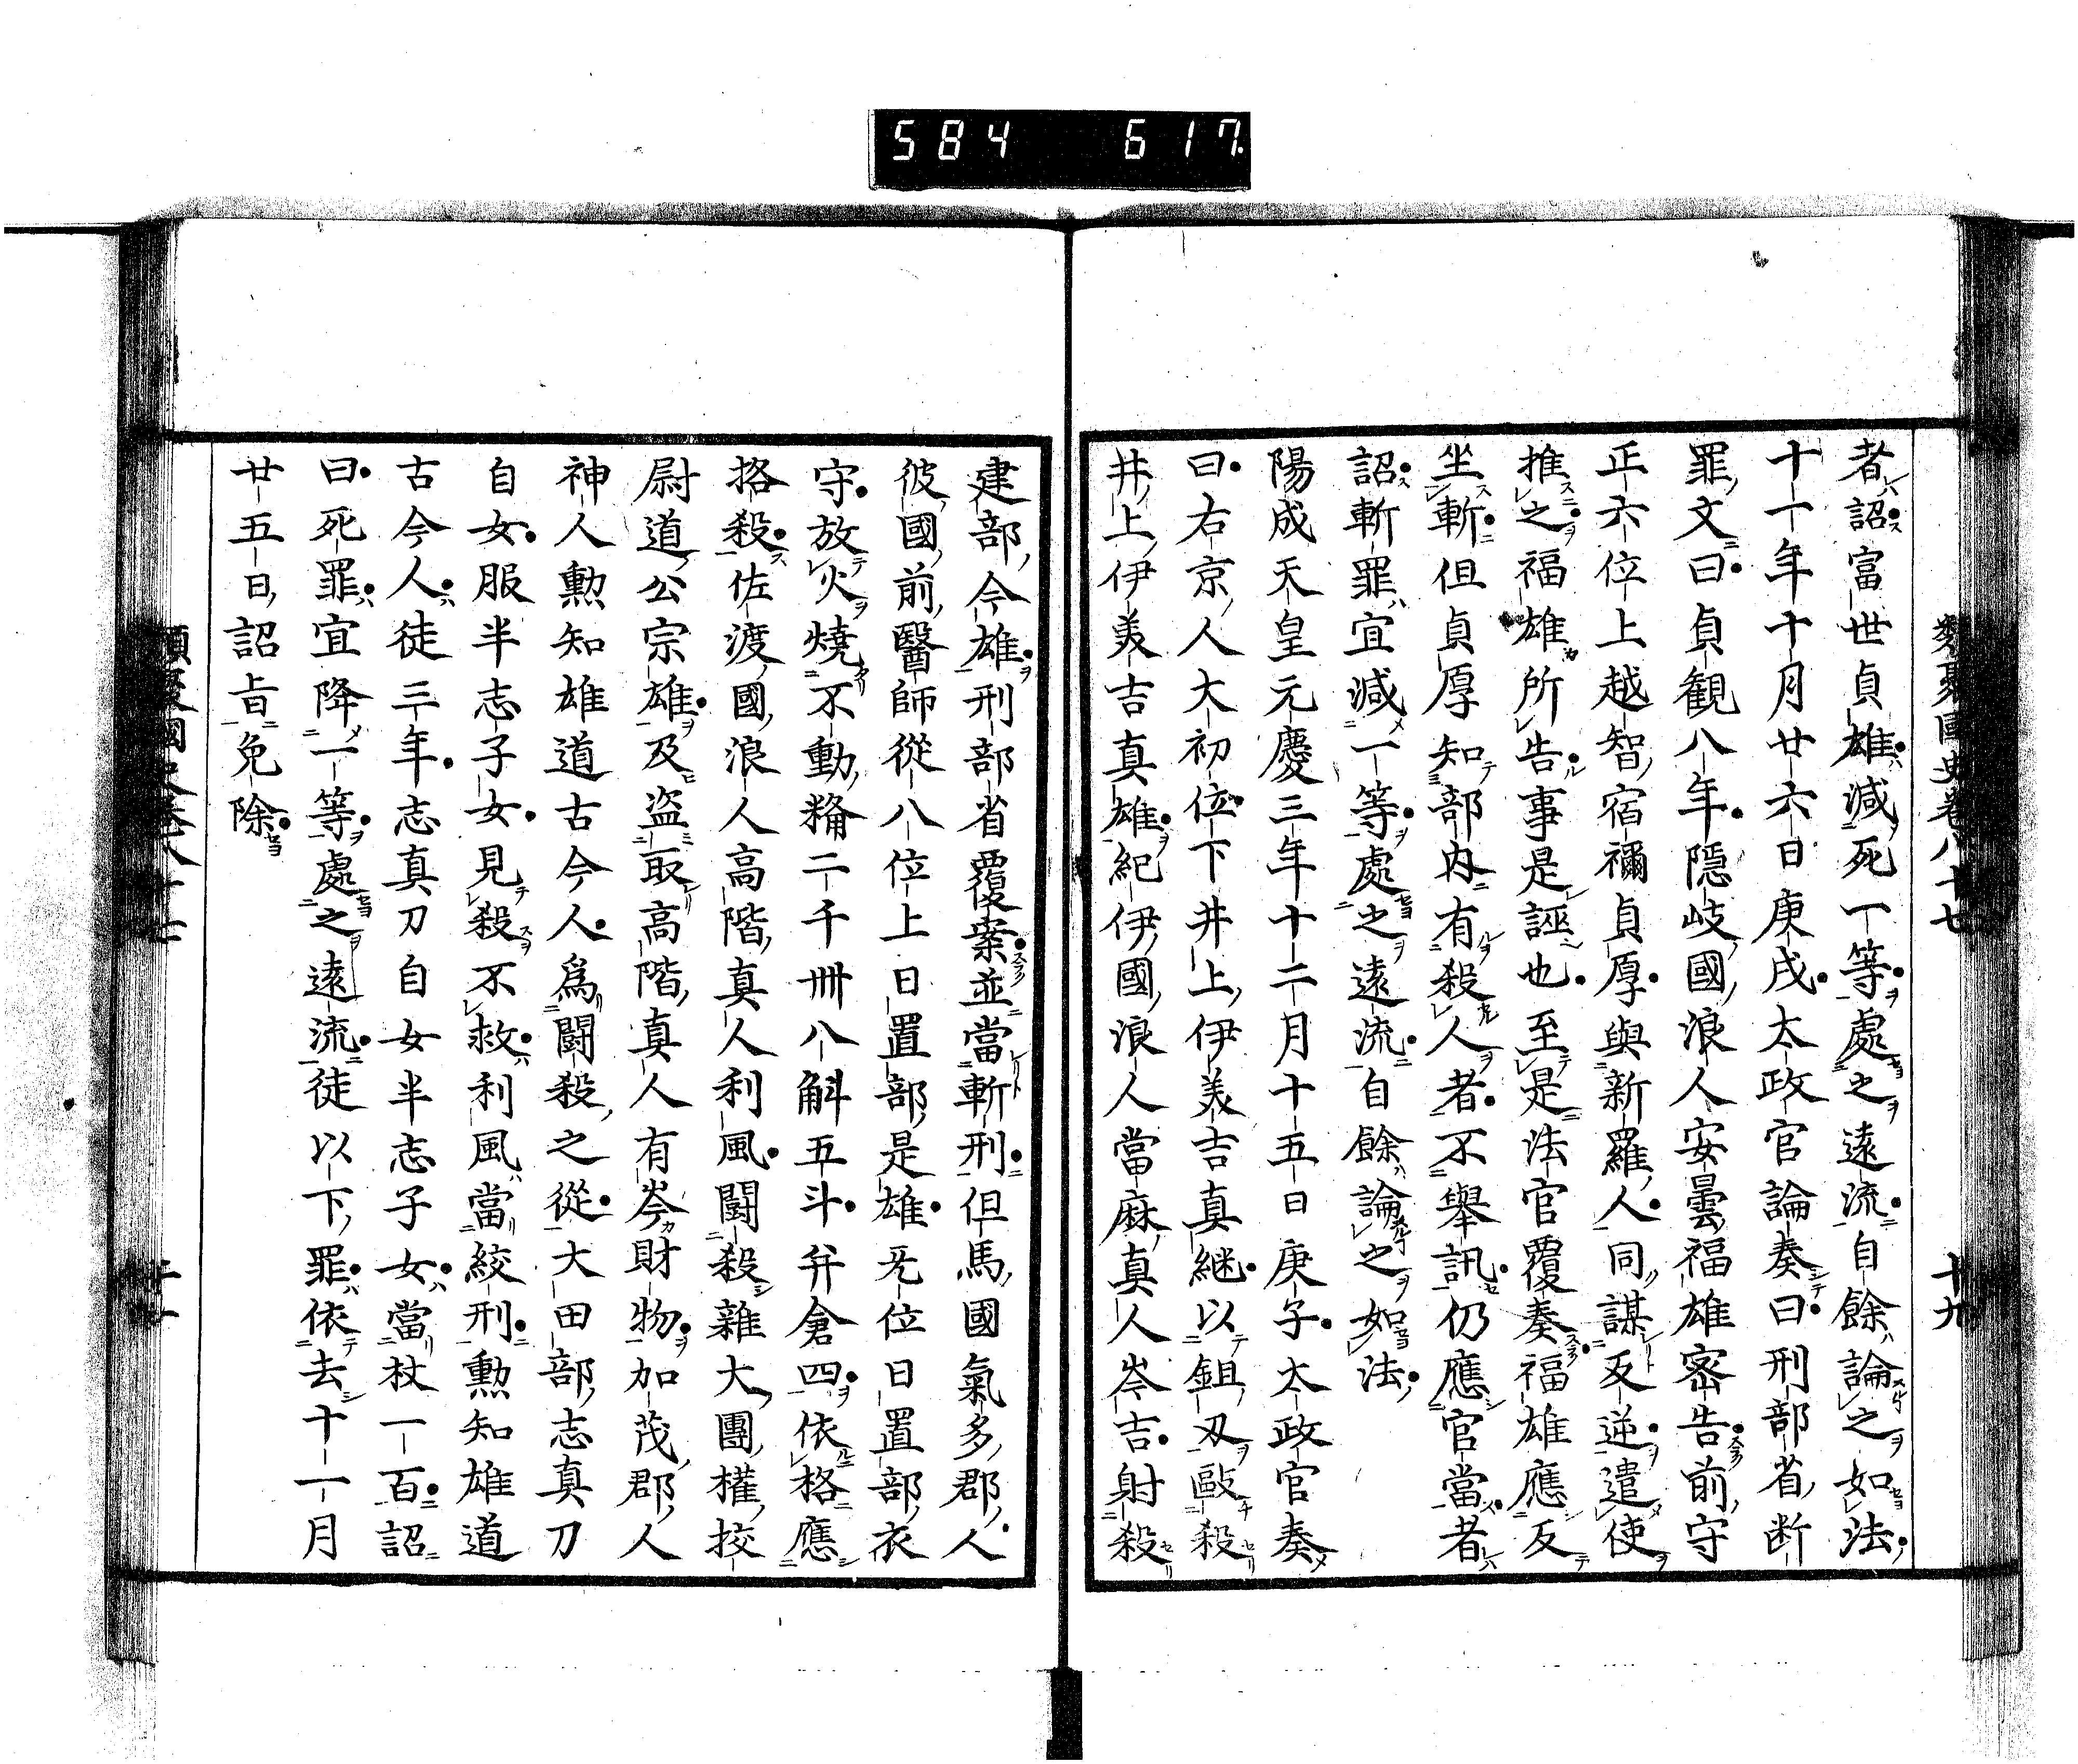 584 617.
類聚國史卷八十七 十九
者詔富世貞雄減死一等處之遠流自餘論之如法
十一年十月廿六日庚戌太政官論奏曰刑部省断
罪文曰貞観八年隠岐國浪人安曇福雄密告前守
正六位上越智宿禰貞厚與新羅人同謀反逆遣使
推之福雄所告事是誣也至是法官覆奏福雄應反
坐斬但貞厚知部内有殺人者不舉訊仍應官當者
詔斬罪宜減一等處之遠流自餘論之如法
陽成天皇元慶三年十二月十五日庚子太政官奏
曰右京人大初位下井上伊美吉真継以鉏刄毆殺
井上伊美吉真雄紀伊國浪人當麻真人岑吉射殺
建部今雄刑部省覆案並當斬刑但馬國氣多郡人
彼國前醫師從八位上日置部是雄旡位日置部衣
守放火燒不動糒二千卌八斛五斗并倉四依格應
挌殺佐渡國浪人高階真人利風鬪殺雜大團權挍
尉道公宗雄及盗取高階真人有岑財物加茂郡人
神人勲知雄道古今人爲鬪殺之從大田部志真刀
自女服半志子女見殺不救利風當絞刑勲知雄道
古今人徒三年志真刀自女半志子女當杖一百詔
曰死罪宜降一等處之遠流徒以下罪依去十一月
廿五日詔旨免除
類聚國史卷八十七